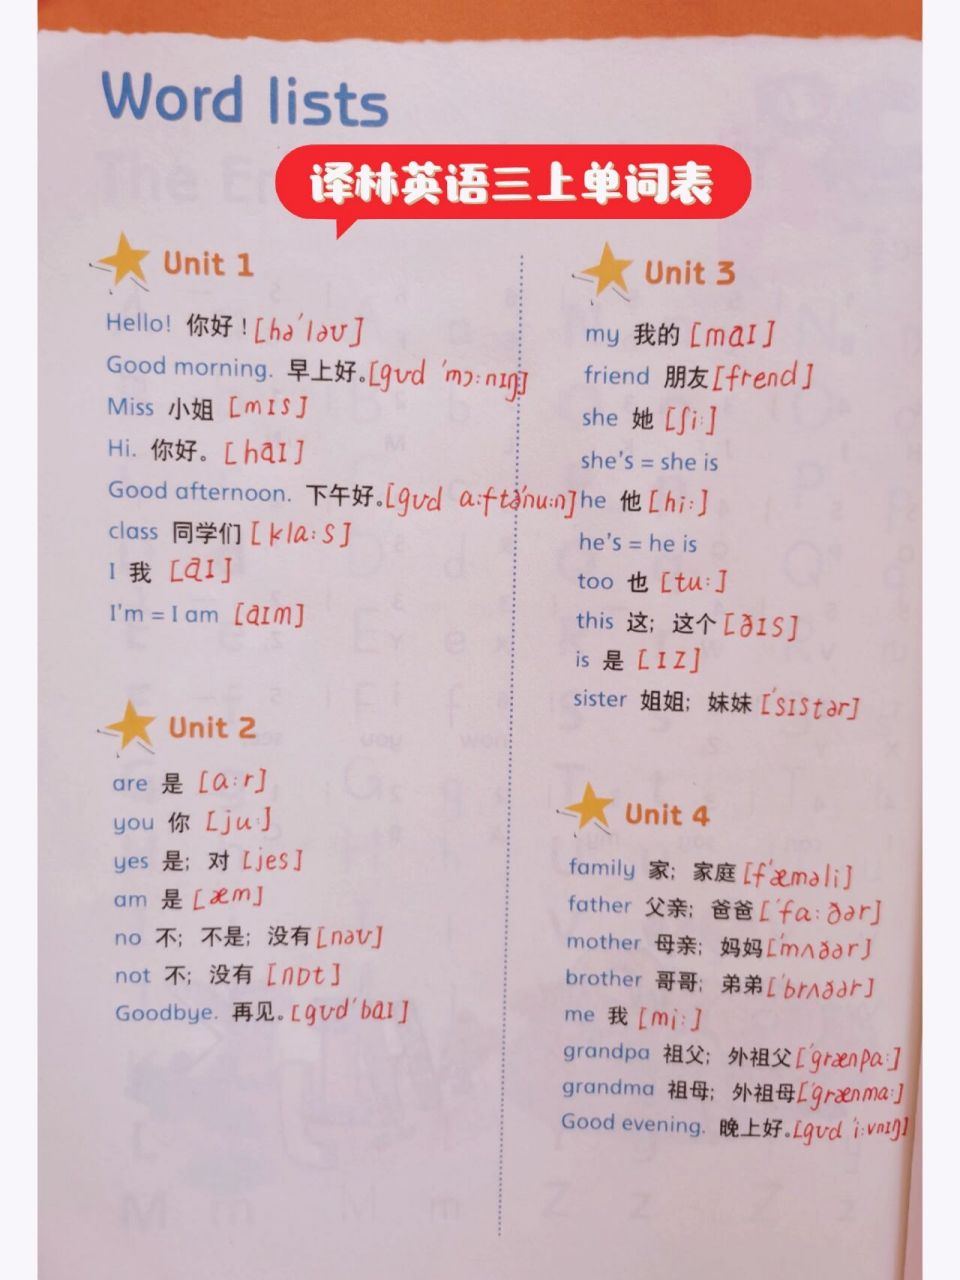 Word lists
译林英语三上单词表
Unit 1
Hello! 你好！[hə'ləʊ]
Good morning. 早上好。[gʊd 'mɔ:nɪŋ]
Miss 小姐 [mɪs]
Hi. 你好。[haɪ]
Good afternoon. 下午好。[gʊd a:ftə'nu:n]
class 同学们 [kla:s]
I 我 [aɪ]
I'm = I am [aɪm]
Unit 2
are 是 [a:r]
you 你 [ju:]
yes 是；对 [jes]
am 是 [æm]
no 不；不是；没有 [nəʊ]
not 不；没有 [nɒt]
Goodbye. 再见。[gʊd'baɪ]
Unit 3
my 我的 [maɪ]
friend 朋友 [frend]
she 她 [ʃi:]
she's = she is
he 他 [hi:]
he's = he is
too 也 [tu:]
this 这；这个 [ðɪs]
is 是 [ɪz]
sister 姐姐；妹妹 ['sɪstər]
Unit 4
family 家；家庭 [f'æməli]
father 父亲；爸爸 ['fa:ðər]
mother 母亲；妈妈 ['mʌðər]
brother 哥哥；弟弟 ['brʌðər]
me 我 [mi:]
grandpa 祖父；外祖父 ['grænpa:]
grandma 祖母；外祖母 ['grænma:]
Good evening. 晚上好。[gʊd 'i:vnɪŋ]